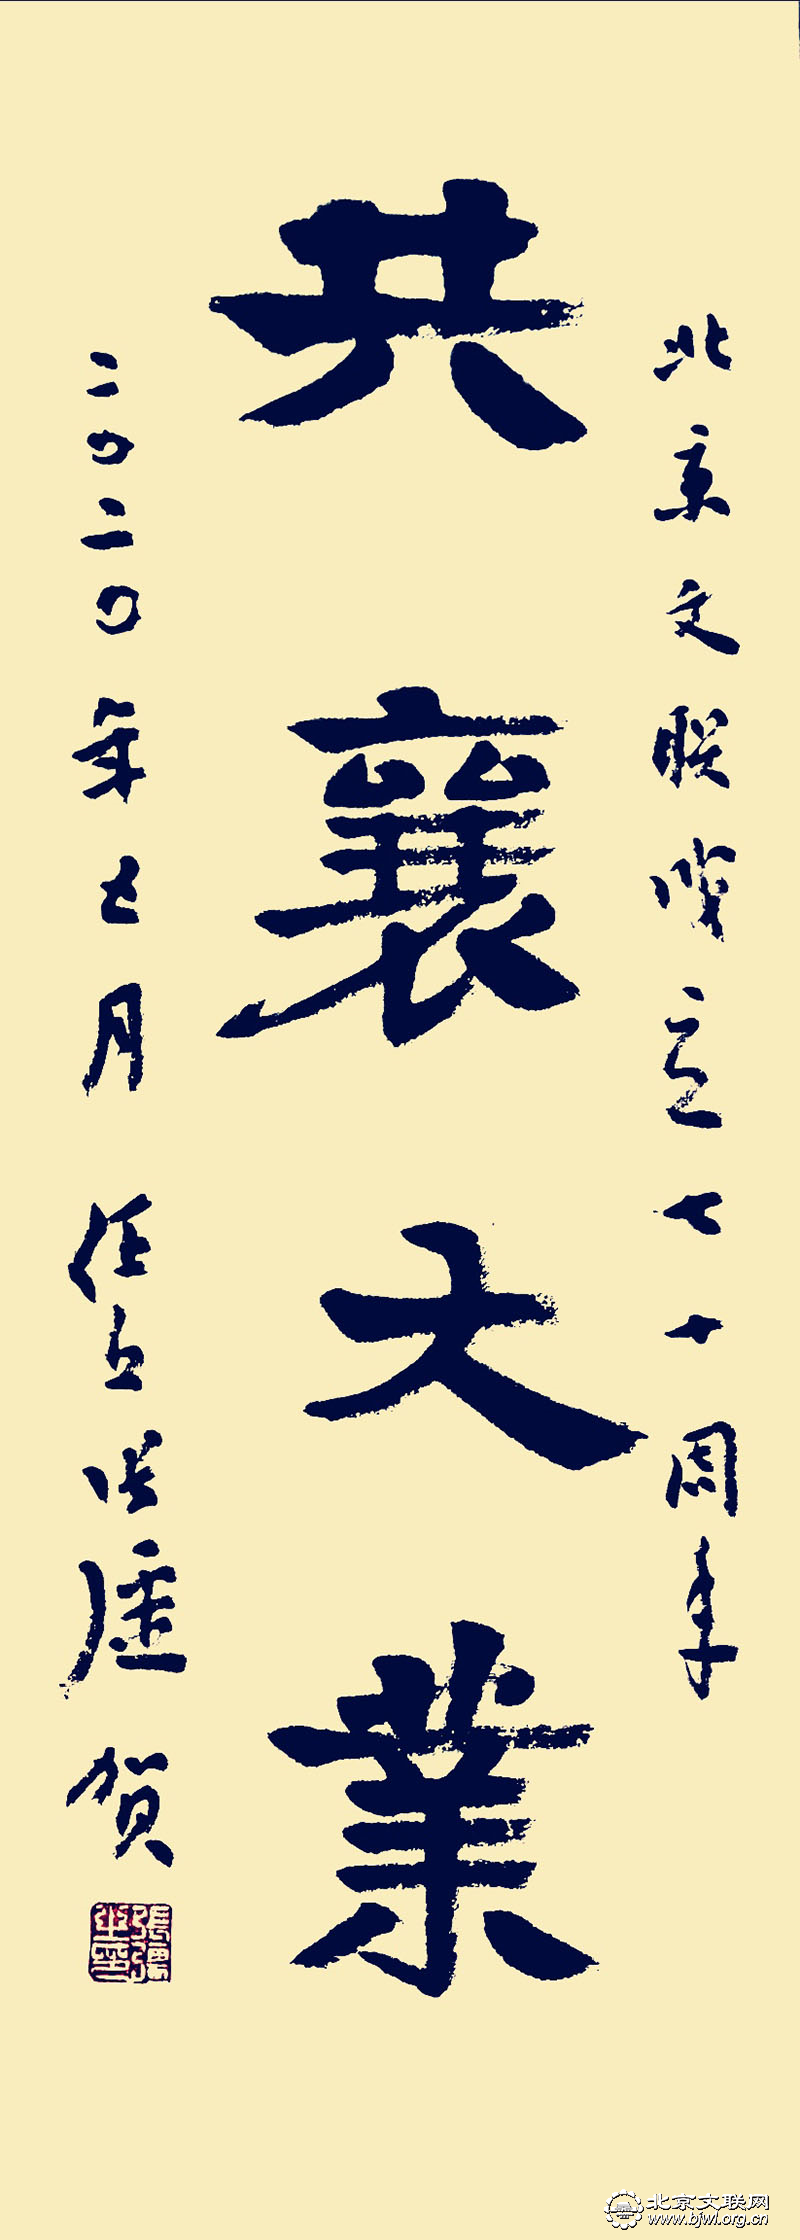 北京文联成立七十周年
共襄大业
二〇二〇年七月 任丘张虚贺
北京文联网
www.bjwl.org.cn